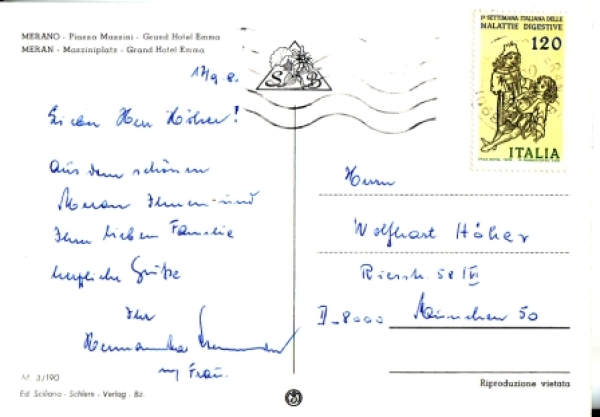 MERANO - Piazza Mazzini - Grand Hotel Emma
MERAN - Mazziniplatz - Grand Hotel Emma
17/9 8.
S B
Lieber Herr Höher!
Aus dem schönen
Meran Ihnen und
Ihrer lieben Familie
herzliche Grüße
Ihr
u Frau.
M 3/190
Ed Scilaria - Schlern - Verlag - Bz.
1ª SETTIMANA ITALIANA DELLE
MALATTIE DIGESTIVE
120
ITALIA
Herrn
Wolfhart Höher
58/VI
D-8000 München 50
Riproduzione vietata